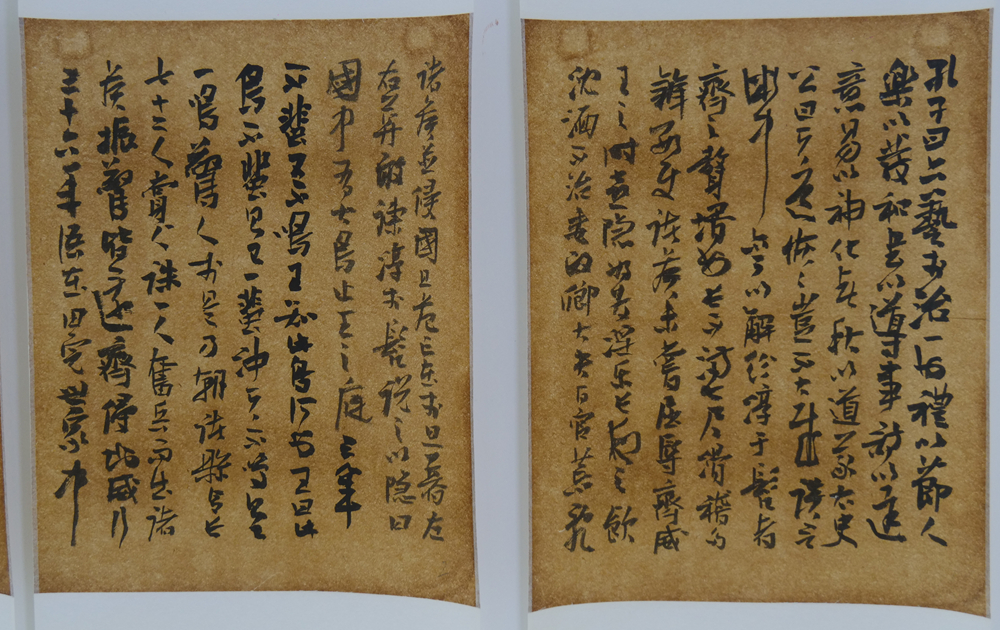 孔子曰六藝於治一也禮以節人
樂以發和書以導事詩以達
意易以神化春秋以道義太史
公曰天道恢々豈不大哉談言
微中亦可以解紛淳于髡者
齊之贅壻也長不滿七尺滑稽多
辯數使諸侯未嘗屈辱齊威
王之時喜隱好為淫樂長夜之飲
沈湎不治委政卿大夫百官荒亂
諸侯並侵國且危亡在於旦暮左
右莫敢諫淳于髡說之以隱曰
國中有大鳥止王之庭三年
不蜚又不鳴王知此鳥何也王曰此
鳥不蜚則已一蜚沖天不鳴則已
一鳴驚人於是乃朝諸縣令長
七十二人賞一人誅一人奮兵而出諸
侯振驚皆還齊侵地威行
三十六年語在田完世家中